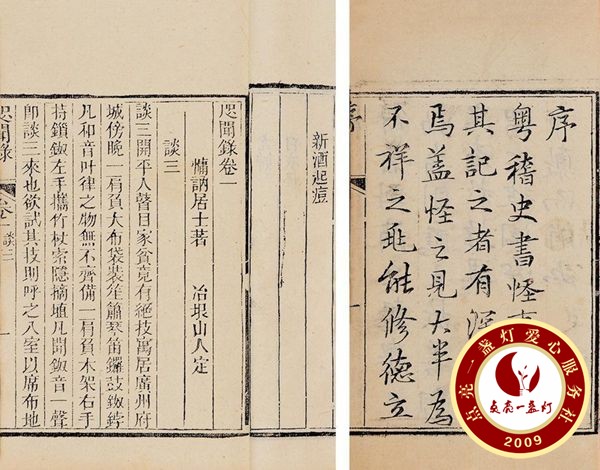 序
粵稽史書怪
其記之者有
焉蓋怪之見大半為
不祥之兆能修德立
新酒起痘
咫聞錄卷一
慵訥居士著 冶垠山人定
談三
談三開平人瞽目家貧竟有絕技寓居廣州府
城傍晚一肩負大布袋裝笙簫琴笛鑼鼓鈸
凡和音叶律之物無不齊備一肩負木架右手
持鎖鈸左手攜竹杖索隱摘埴凡聞鈸音一聲
即談三來也欲試其技則呼之入室以席布地
咫聞錄 卷一 談三
点亮一盏灯爱心服务社
点亮一盏灯
2009